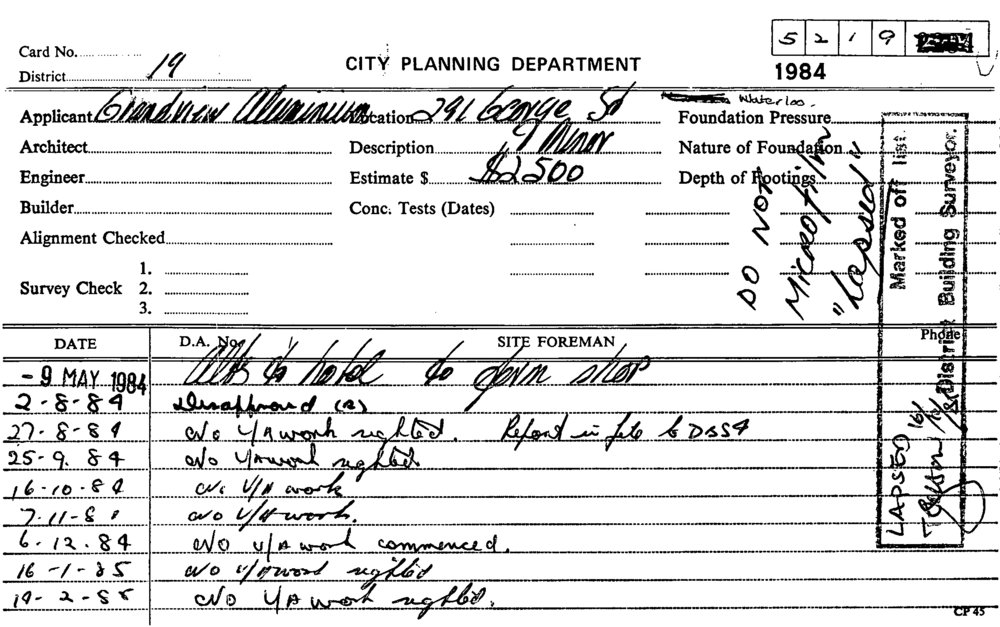 5 2 1 9
Card No.
District 19
CITY PLANNING DEPARTMENT
1984
Applicant Grandview Aluminium
Location 291 George St Waterloo.
Foundation Pressure
Architect
Description Minor
Nature of Foundation
Engineer
Estimate $ $2500
Depth of Footings
Builder
Conc. Tests (Dates)
Alignment Checked
Survey Check
1.
2.
3.
DO NOT
Microfilm
"Lapsed"
Marked off list.
District Building Surveyor.
LAPSED 16/
DATE
D.A. No.
SITE FOREMAN
Phone
- 9 MAY 1984 Alts to hotel to form shop
2-8-84 Disapproved (2)
27-8-84 No U/A work sighted. Report in file to DBS4
25-9.84 No U/A work sighted
16-10-84 No U/A work
7-11-8 No U/A work.
6-12.84 No U/A work commenced.
16-1-85 No U/A work sighted
19-2-85 No U/A work sighted.
CP 45